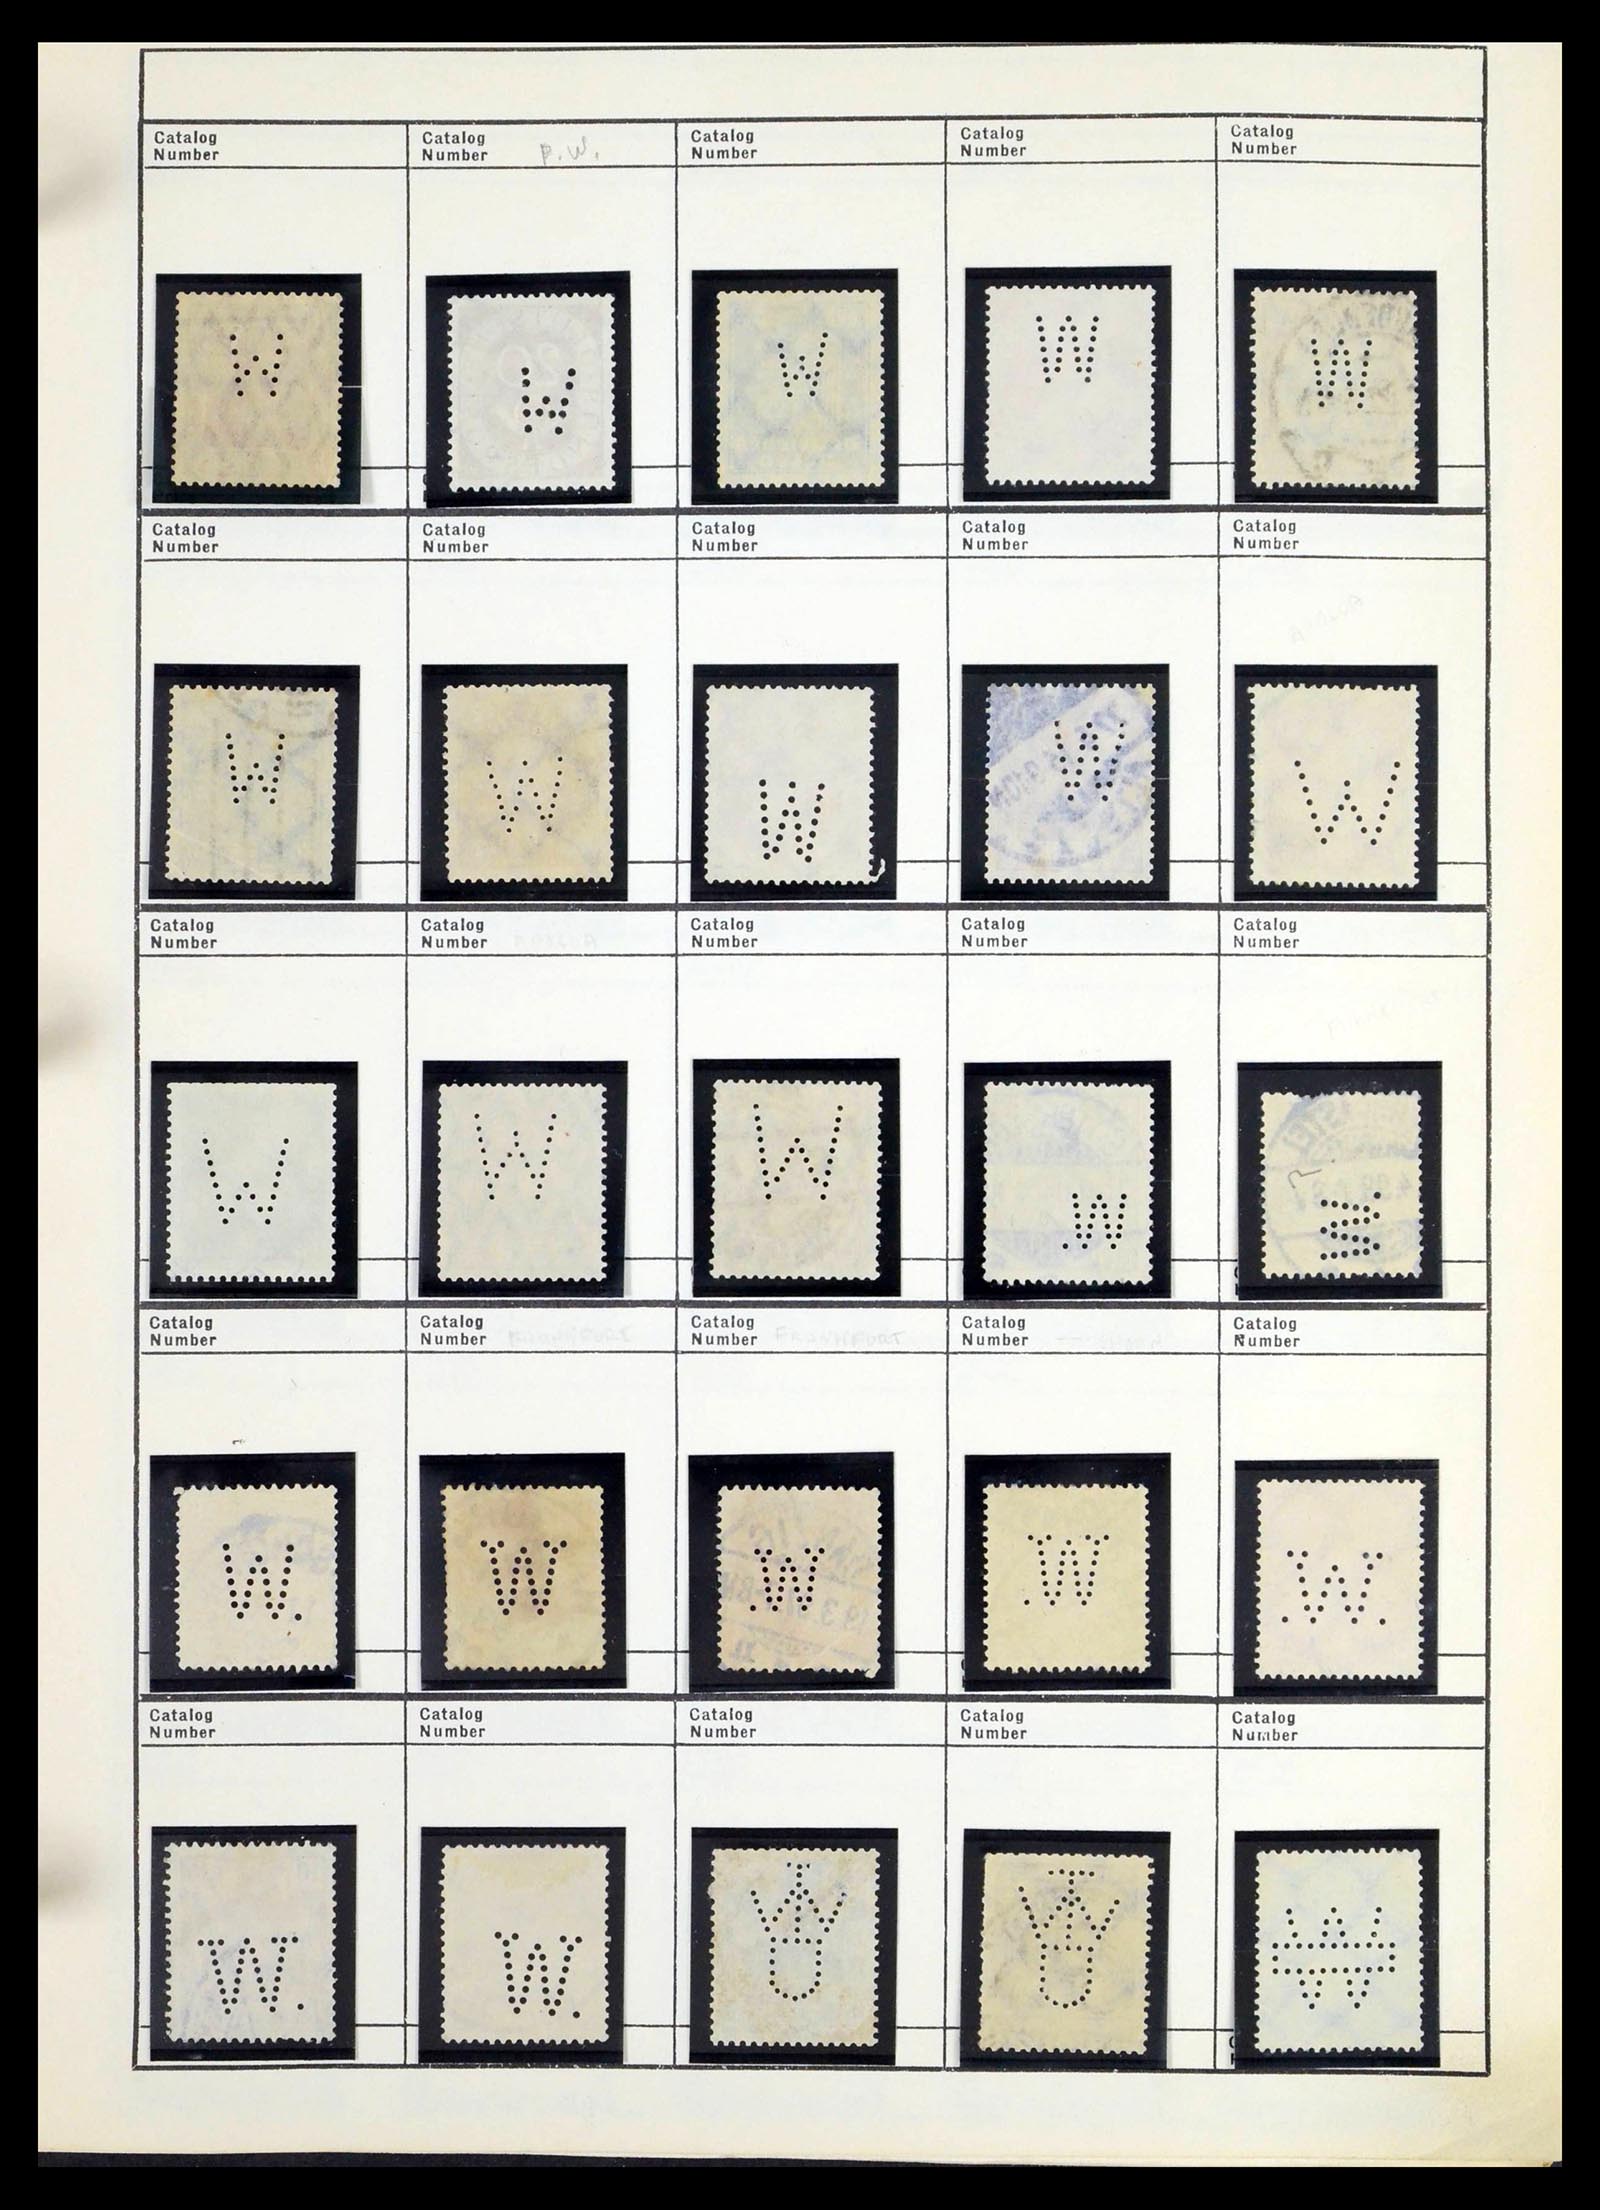 Catalog Number
Catalog Number P.W.
Catalog Number
Catalog Number
Catalog Number
W
W
W
W
W
Catalog Number
Catalog Number
Catalog Number
Catalog Number
Catalog Number
W
W
W
W
W
Catalog Number
Catalog Number
Catalog Number
Catalog Number
Catalog Number
W
W
W
.W
W
Catalog Number
Catalog Number
Catalog Number FRANKFURT
Catalog Number
Catalog Number
W.
W
.W
.W
.W.
Catalog Number
Catalog Number
Catalog Number
Catalog Number
Catalog Number
W.
W.
W
W
W